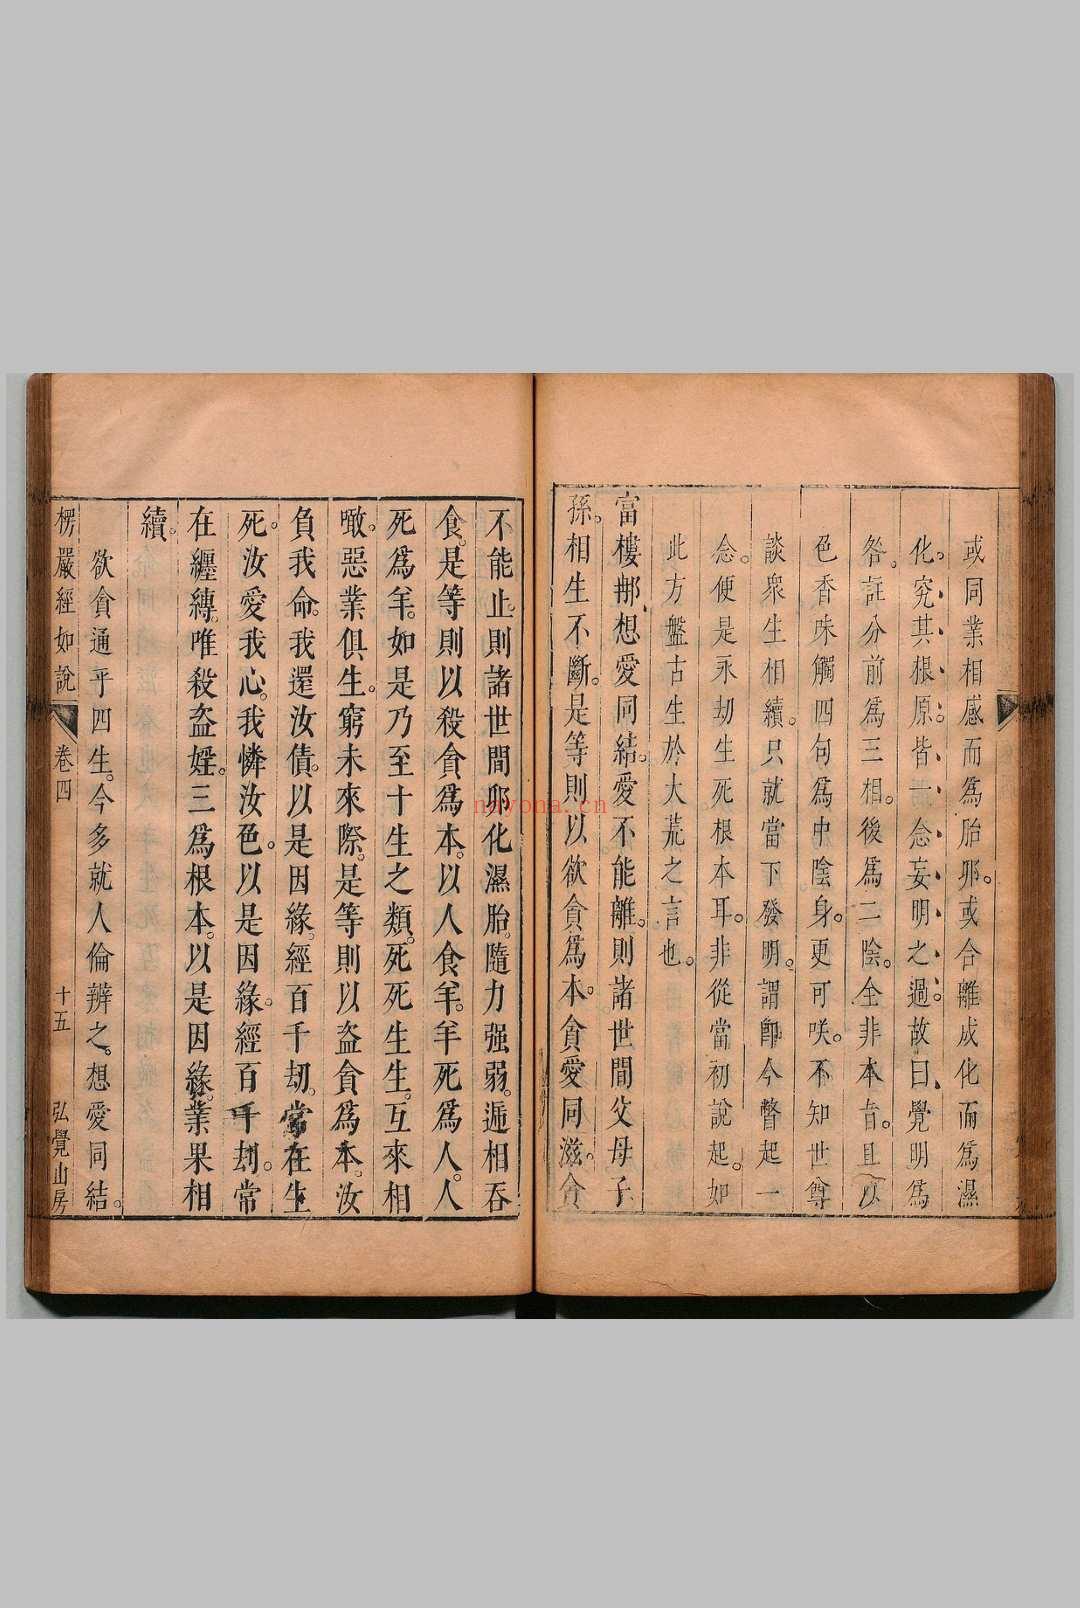 或同業相感而爲胎卵。或合離成化而爲濕
化。究其根原。皆一念妄明之過。故曰覺明爲
咎。註分前爲三相。後爲二陰。全非本旨。且以
色香味觸四句爲中陰身。更可咲。不知世尊
談衆生相續。只就當下發明。謂卽今瞥起一
念。便是永劫生死根本耳。非從當初說起。如
此方盤古生於大荒之言也。
富樓那。想愛同結。愛不能離。則諸世間父母子
孫。相生不斷。是等則以欲貪爲本。貪愛同滋。貪
不能止。則諸世間卵化濕胎。隨力强弱。遞相吞
食。是等則以殺貪爲本。以人食羊。羊死爲人。人
死爲羊。如是乃至十生之類。死死生生。互來相
噉。惡業俱生。窮未來際。是等則以盜貪爲本。汝
負我命。我還汝債。以是因緣。經百千劫。常在生
死。汝愛我心。我憐汝色。以是因緣。經百千劫。常
在纏縛。唯殺盜婬。三爲根本。以是因緣。業果相
續。
欲貪通乎四生。今多就人倫辨之。想愛同結。
楞嚴經如說 卷四 十五 弘覺山房
nayona.cn